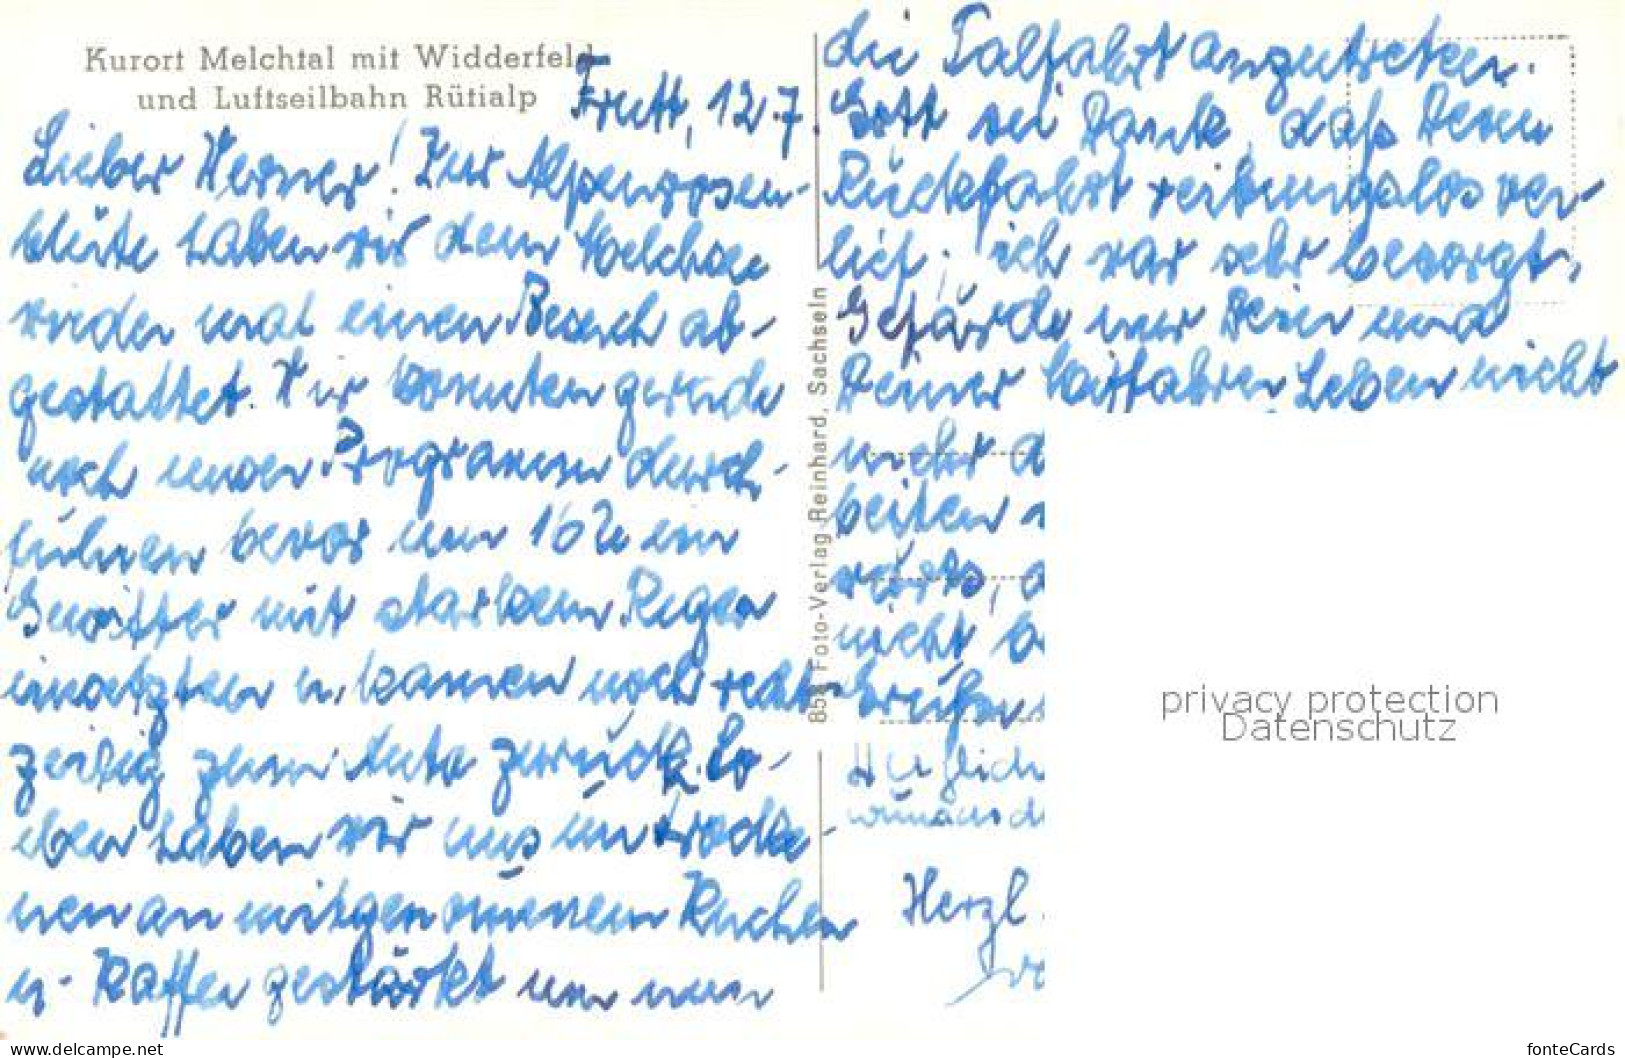 Kurort Melchtal mit Widderfeld
und Luftseilbahn Rütialp
Frutt, 12.7.
Lieber Werner! Zur Alpenrosen-
blüte haben wir dem Melchsee
wieder mal einen Besuch ab-
gestattet. Wir konnten gerade
noch unser Programm durch-
führen bevor um 16 ein
Gewitter mit starkem Regen
einsetzte u. kamen noch recht-
zeitig zum Auto zurück. So-
eben haben wir uns im trocke-
nen an mitgenommenem Kuchen
u. Kaffee gestärkt um nun
die Talfahrt anzutreten.
Gott sei Dank, daß Deine
Rückfahrt reibungslos ver-
lief; ich war sehr besorgt.
Gefährde nur Dein und
Deiner Mitfahrer Leben nicht
mehr d
beiten
wärts, d
nicht b
Grüßen
wünsch
Herzl.
858 Foto-Verlag Reinhard, Sachseln
privacy protection
Datenschutz
www.delcampe.net
fonteCards